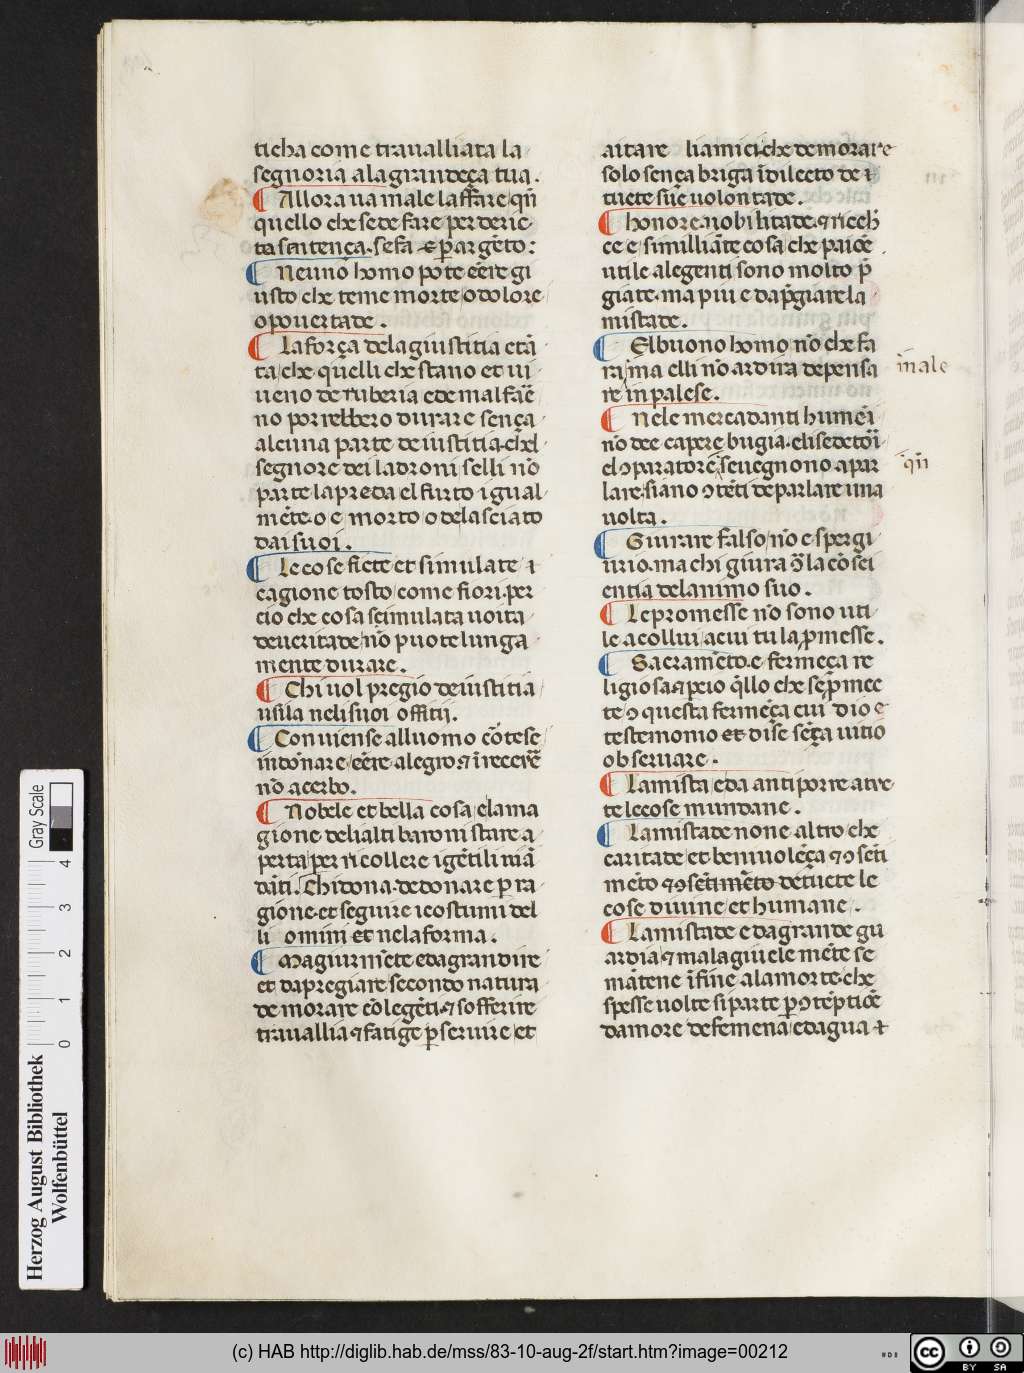 ticha come traualliata la
segnoria ala grandeça tua.
¶ Allora ua male laffare qñ
quello che se de fare per deric
ta sentença. se fa p argēto:
¶ Neuno homo pote eēre gi
usto che teme morte o dolore
o pouertade.
¶ La força dela giustitia e tā
ta che quelli che stano et ui
ueno de ruberia e de malfaē
no porrebbero durare sença
alcuna parte de iustitia. chel
segnore dei ladroni selli nō
parte la preda el furto igual
mēte. o e morto o de lasciato
dai suoi.
¶ Le cose ficte et simulate
cagione tosto come fiori. per
cio che cosa scimulata uoita
de ueritade nō puote lunga
mente durare.
¶ Chi uol pregio de iustitia
usila neli suoi offitij.
¶ Conuiense alluomo cōtese
in donare eēre alegro ⁊ i receūe
nō acerbo.
¶ Nobele et bella cosa e la ma
gione deli alti baroni stare a
perta per ricollere i gētili uiā
dāti. Chi dona. de donare p ra
gione. et seguire i costumi del
li omini et ne la forma.
¶ Magiurmēte e da grandire
et da pregiare secondo natura
de morare cō le gēti ⁊ sofferire
trauallia ⁊ fatige p seruire et
aitare li amici. che de morare
solo sença briga ī dilecto de
tucte sūe uolontade.
¶ honore. nobilitade. ⁊ ricch
ce e simillīate cosa che paiōe
utile a le genti sono molto p
giate. ma piu e da pgiare la
mistade.
¶ El buono homo nō che fa
ra ma elli nō ardira de pensa
re in palese.
ī male
¶ Nele mercadanti humēi
nō dee capere bugia. eli se detoi
el ꝯparatore se uegnono a par
qñ
lare. siano ꝯtēti de parlare una
uolta.
¶ Giurare falso nō e spergi
urio. ma chi giura ꝯ la cōsci
entia del animo suo.
¶ Le promesse nō sono uti
le a collui a cui tu la pmesse.
¶ Sacramēto. e fermeça re
ligiosa ⁊ peio qllo che se pmec
te ꝯ questa fermeça cui dio e
testemonio et dise sēça uitio
observare.
¶ Lamista e da antiporre a tvc
te le cose mundane.
¶ Lamistade non e altro che
caritade et beniuolēça ⁊ ꝯsēti
mēto ⁊ ꝯsētimēto de tucte le
cose diuine et humane.
¶ Lamistade e da grande gu
ardia ⁊ malagiuele mēte se
mātene ī fine ala morte. che
spesse uolte si parte p ꝯtēptiōe
damore de femena e dagua
Gray Scale
4
3
2
1
0
Herzog August Bibliothek
Wolfenbüttel
(c) HAB http://diglib.hab.de/mss/83-10-aug-2f/start.htm?image=00212
cc BY SA